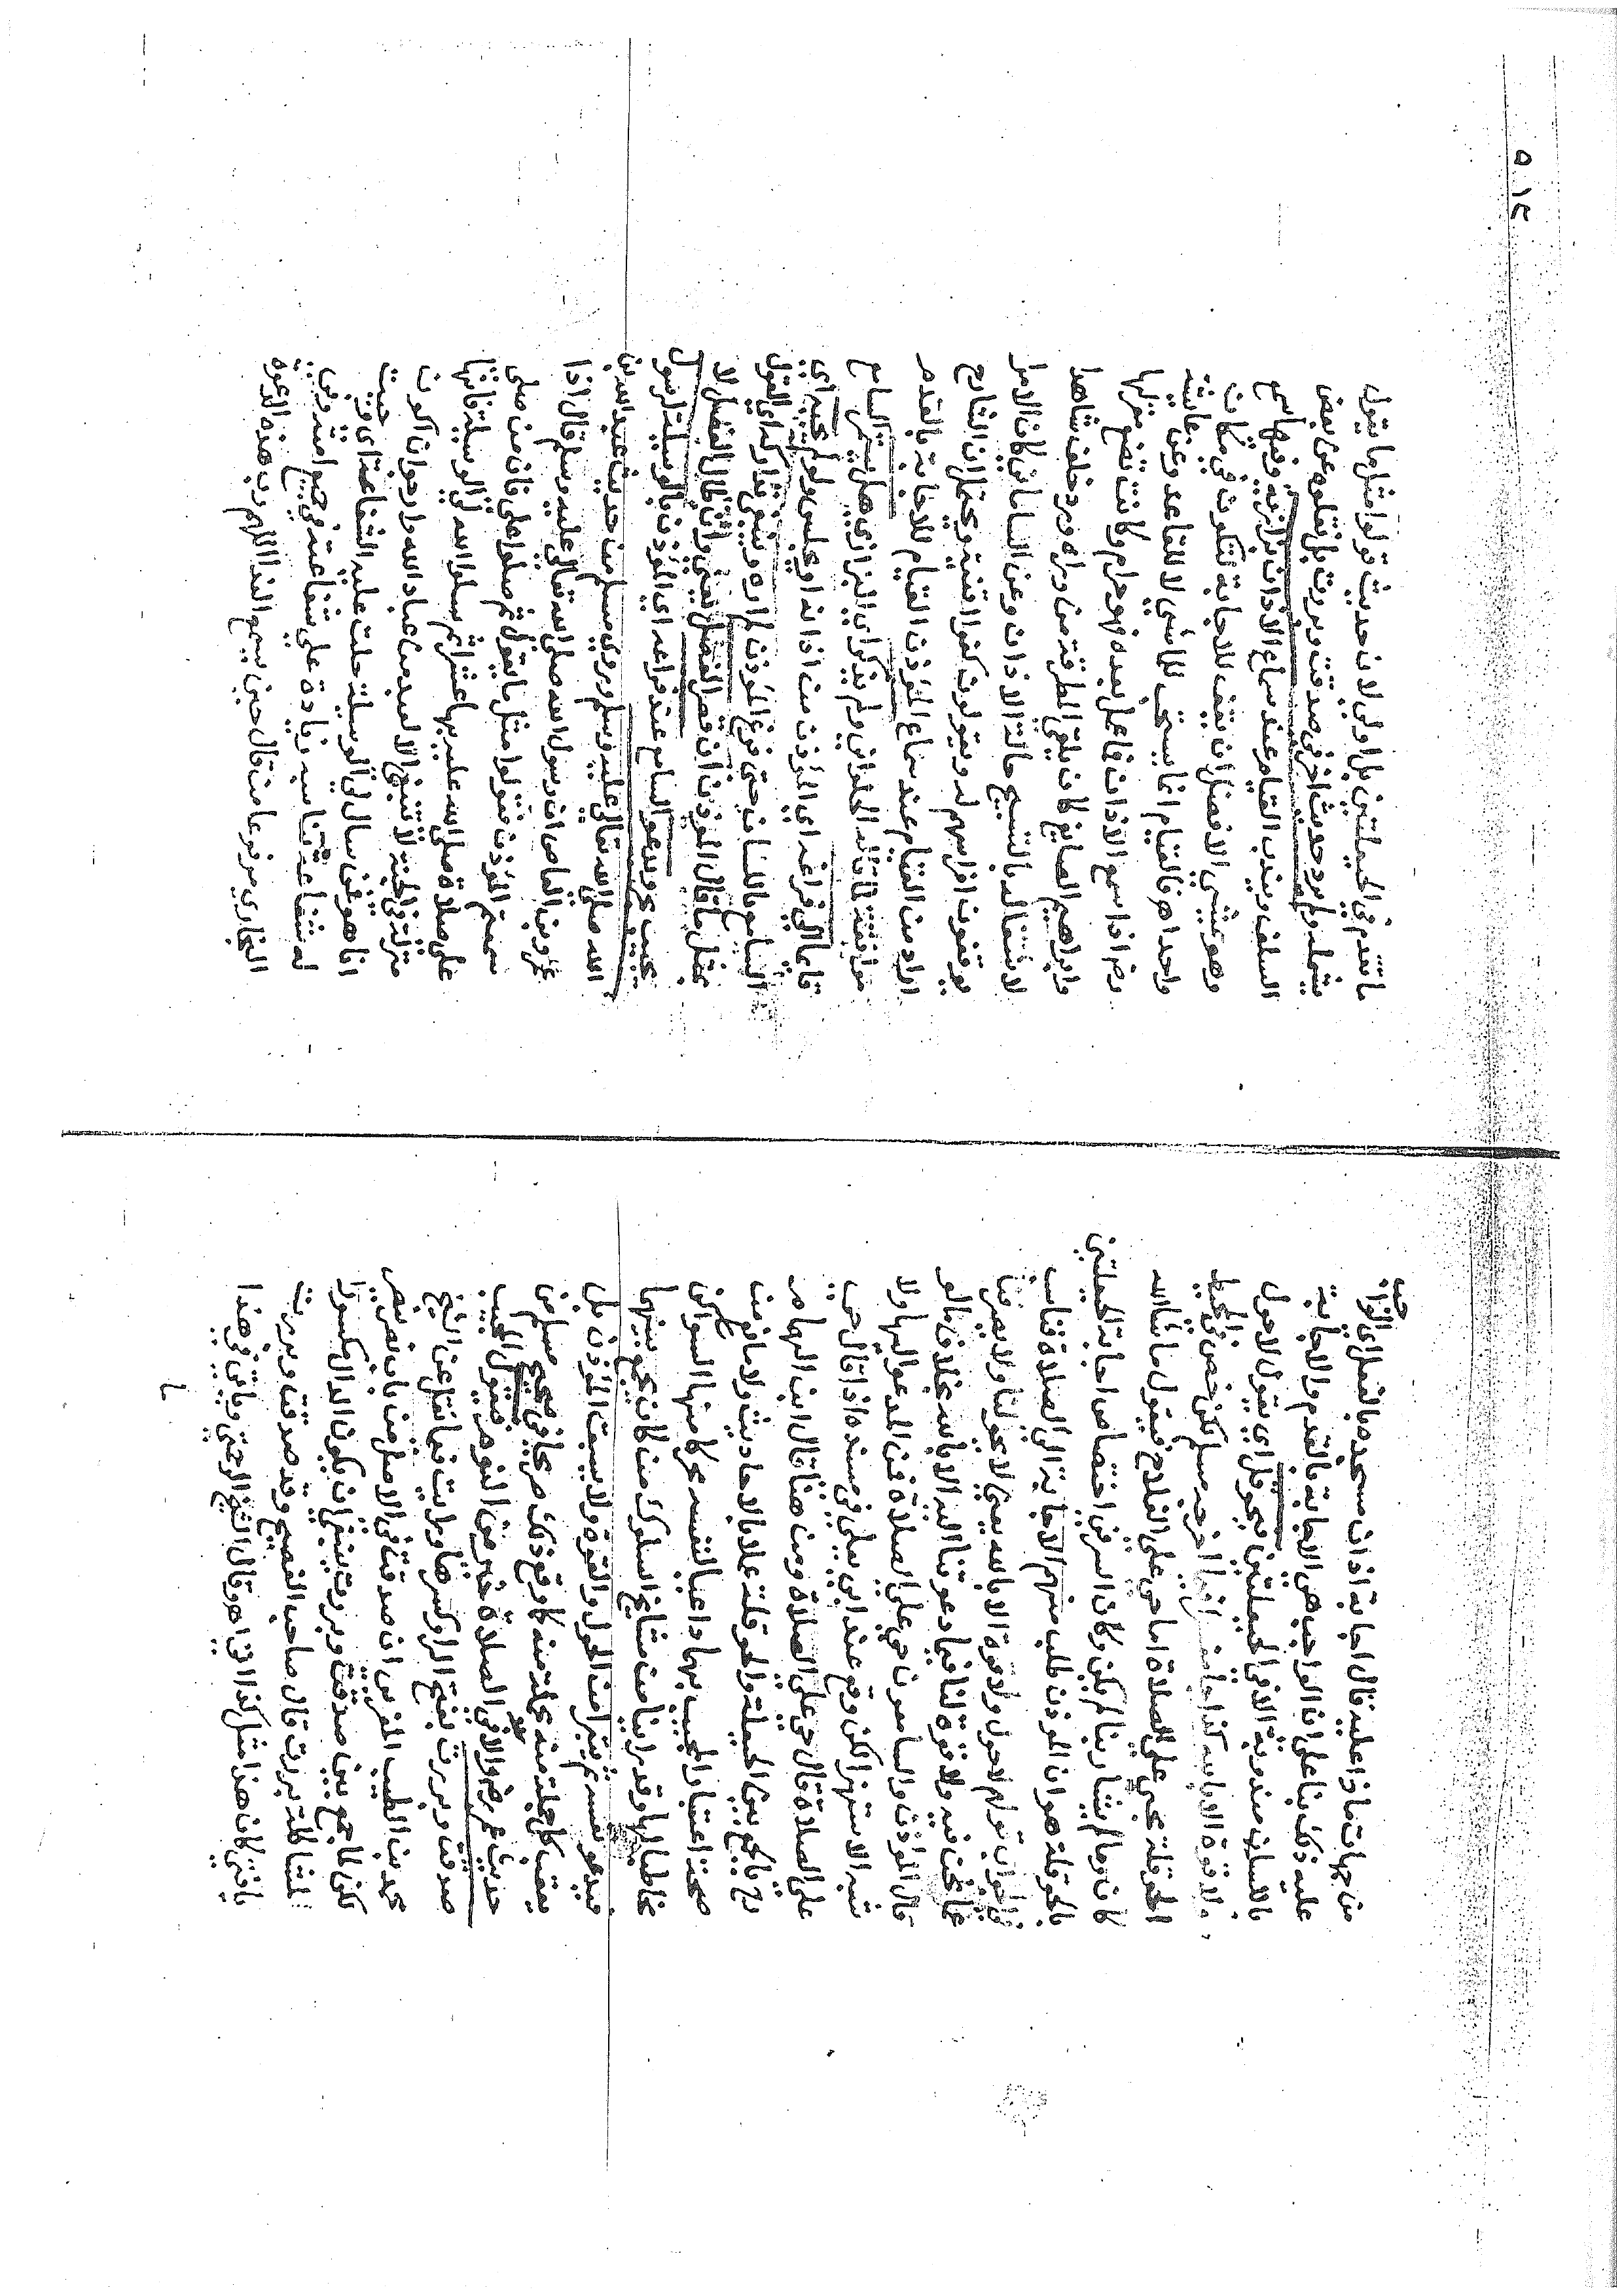 من جهات فماذا عليه قال اجابة اذان مسجده بالفعل اي الواجب
عليه ذلك بناء على ان الواجب هي الاجابة بالقدم والاجابة
باللسان مندوبة الا في الحيعلتين فيحوقل اي يقول لا حول
ولا قوة الا بالله كذا اخرجه مسلم لكن خص في المحيط
الحوقلة بحي على الصلاة اما حي على الفلاح فيقول ما شاء الله
كان وما لم يشأ ربنا لم يكن وكان السر في اختصاص اجابة الحيعلتين
بالحوقلة هو ان المؤذن طلب منهم الاجابة الى الصلاة فناسب
في الجواب قولهم لا حول ولا قوة الا بالله يعني لا تحولنا ولا تصرفنا
عما نحن فيه ولا قوة لنا فيما دعوتنا اليه الا بالله بخلاف ما لو
قال المؤذن والسامعون حي على الصلاة فمن المدعو اليها ولا
شبه الاستهزاء لكن وقع عند ابي يعلى في مسنده اذا قال حي
على الصلاة قال حي على الصلاة ومن هنا قال ابن الهمام
رح يجمع بين الحيعلة والحوقلة عملا بالاحاديث ولا مانع من
صحة اعتبار المجيب بها داعيا لنفسه محركا منها السواكن
مخاطبا لها وقد راينا من مشايخ السلوك من كان يجمع بينهما
فيدعو نفسه ثم يتبرأ من الحول والقوة ولا يسبق المؤذن بل
يعقب كل جملة منه بجملة منه كما وقع ذلك صريحا في صحيح مسلم من
حديث عمر رضي والا في الصلاة خير من النوم فيقول المجيب
صدقت وبررت بفتح الراء وكسرها
محمد بن الطيب الفاسي ان صدقت في الاصل من باب نصر
لكن لما جمع بين صدقت وبررت ينبغي ان يكون الدال مكسورا
للمشاكلة بررت قال صاحب الفصيح وقد صدقت وبررت
ما تقدم في الحيعلتين بل اولى لان حديث قولوا مثل ما يقول
يشمله ولم يرد حديث اخر في صدقت وبررت بل نقلوه عن بعض
السلف ويندب القيام عند سماع الاذان بزازيه وفيها سمع
وهو يمشي الافضل ان يقف للاجابة لتكون في مكان
واحد اهـ فالقيام انما يستحب للماشي لا للقاعد وعن عائشة
رضي اذا سمع الاذان فما عمل بعده فهو حرام وكانت تضع مغزلها
وابراهيم الصائغ كان يلقي المطرقة من ورائه ورد خلف شاهدا
لاشتغاله بالنسج حالة الاذان وعن السلماني كان الامراء
يوقفون افراسهم له ويقولون كفوا القنية ويحتمل ان الشارح
اراد من القيام عند سماع المؤذن القيام للاجابة بالقدم
موافقة لما قاله الحلواني ولم يذكر اي البزازي هل يستمر السامع
قائما الى فراغه اي المؤذن من اذانه او يجلس ولو لم يجبه اي
السامع باللسان حتى فرغ المؤذن لم اره وينبغي تداركه اي القول
بمثل ما قال المؤذن ان قصر الفصل يعني وان طال الفصل لا
يجب بحر ويدعو السامع عند فراغه اي المؤذن بالوسيلة لرسول
الله صلى الله تعالى عليه وسلم وروى مسلم من حديث عبد الله بن
عمرو بن العاص ان رسول الله صلى الله تعالى عليه وسلم قال اذا
سمعتم المؤذن فقولوا مثل ما يقول ثم صلوا علي فانه من صلى
علي صلاة صلى الله عليه بها عشرا ثم سلوا الله لي الوسيلة فانها
منزلة في الجنة لا تنبغي الا لعبد من عباد الله وارجو ان اكون
انا هو فمن سال لي الوسيلة حلت عليه الشفاعة اي وجبت
له شفاعة تناسبه زيادة على شفاعته في جميع امته وروى
البخاري مرفوعا من قال حين يسمع النداء اللهم رب هذه الدعوة